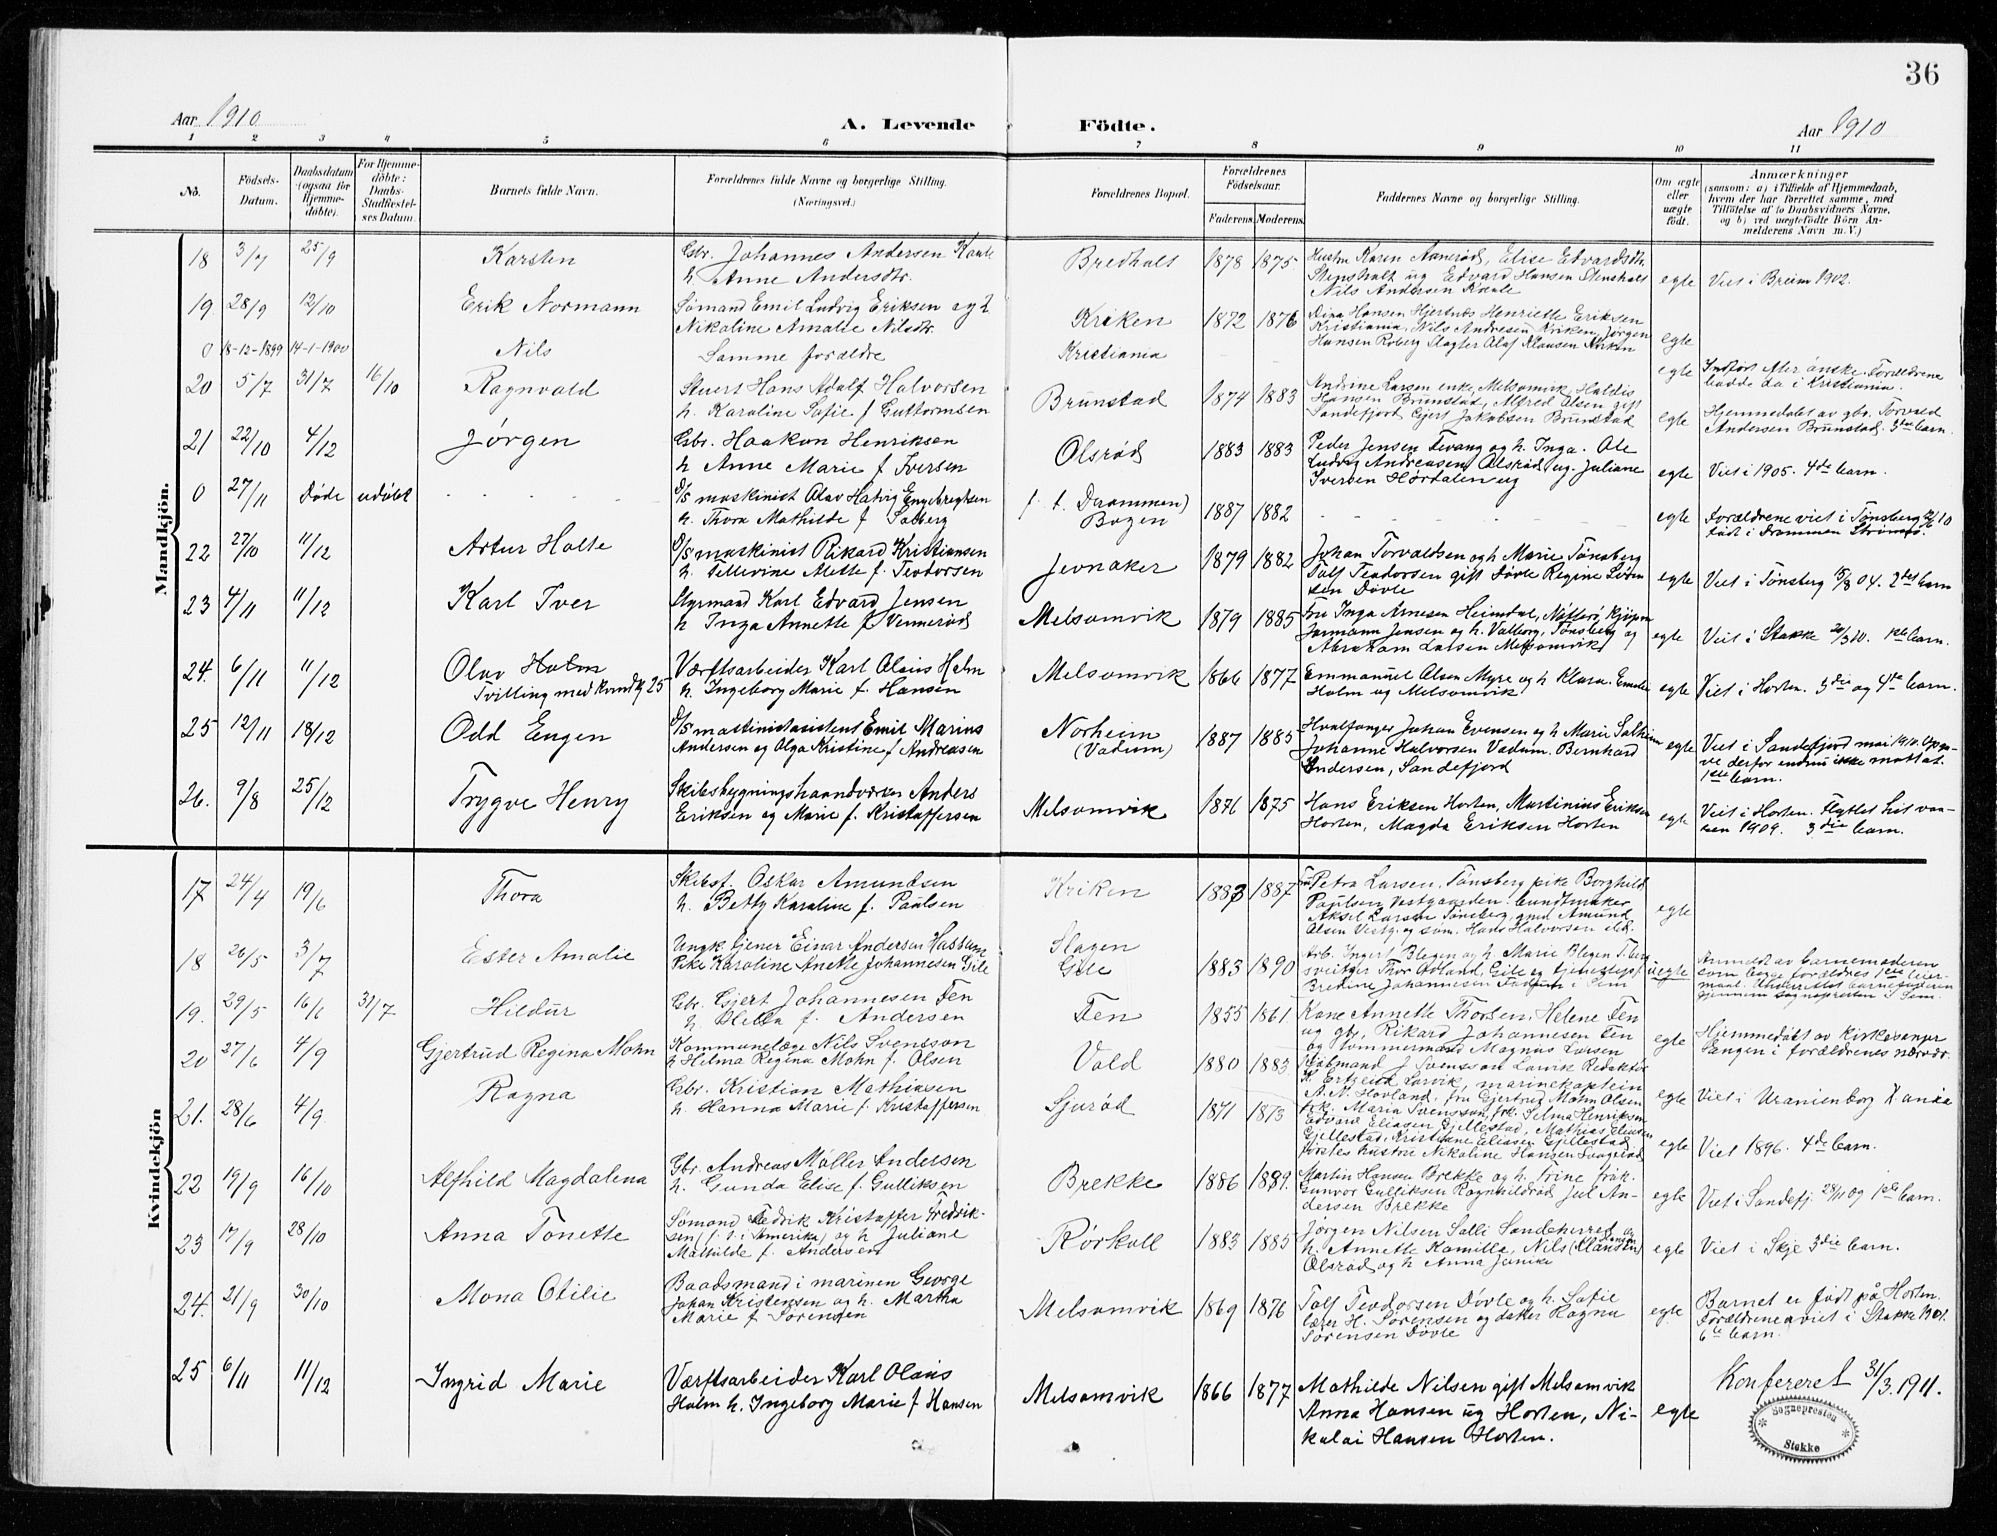 36
Aar 1910
A. Levende Födte.
Aar 1910
1 2 3 4 5 6 7 8 9 10 11
No.
Födsels-Datum.
Daabsdatum (ogsaa for Hjemme-døbte).
For Hjemme-døbte: Daabs-Stadfestel-ses Datum.
Barnets fulde Navn.
Forældrenes fulde Navne og borgerlige Stilling.
(Næringsvei.)
Forældrenes Bopæl.
Forældrenes Födselsaar.
Faderens. Moderens.
Faddernes Navne og borgerlige Stilling.
Om ægte eller uægte født.
Anmærkninger
(saasom: a) i Tilfælde af Hjemmedaab,
hvem der har forrettet samme, med
Tilföielse af to Daabsvidners Navne,
og b) ved uægtefödte Börn An-
melderens Navn m. V.)
Mandkjön.
18 3/7 25/9 Karsten Gbr. Johannes Andersen Kaale
h. Anne Andersdtr. Bredholt 1878 1875 Hustru Karen Aanerød, Elise Edvardsdtr.
Stensholt ug Edvard Hansen Stensholt
Nils Andersen Kaale egte Viet i Breim 1902.
19. 28/9 12/10 Erik Normann Sømand Emil Ludvig Eriksen og h.
Nikoline Amalie Nilsdtr. Kriken 1872 1876 Hansen Hjertnes Henriette Eriksen
Kristiania, Nils Andresen Kriken, Jørgen
Hansen Roberg Slagter Olaf Klausen Kriken egte
0 18-12-1899 14-1-1900 Nils Samme forældre Kristiania egte Indført efter ønske. Forældrene
bodde da i Kristiania.
20 5/7 31/7 16/10 Ragnvald Stuert Hans Adolf Halvorsen
h. Karoline Sofie f. Guttormsen Brunstad 1874 1883 Andrine Larsen enke, Melsomvik, Haldis
Hansen Brunstad, Alfred Olsen gift
Sandefjord, Gjert Jakobsen Brunstad egte Hjemmedøbt av gbr. Torvald
Andersen Brunstad. 3die barn.
21 22/10 4/12 Jørgen Gbr. Haakon Henriksen
h. Anne Marie f. Iversen Olsrød 1883 1883 Peder Jensen Tevang og h. Inga. Ole
Ludvig Andreasen Olsrød ug. Juliane
Iversen Hørdalen ug egte Viet i 1905. 4de barn.
0 27/11 Døde udøbt D/S maskinist Olav Hatvig Engebregtsen
h. Thora Mathilde f. Solberg f. t. Drammen)
Bogen 1887 1882 egte Forældrene viet i Tønsberg 10
født i Drammen Strømsø.
22 27/10 11/12 Artur Holte D/S maskinist Rikard Kristiansen
h. Tellevine Alette f. Teodorsen Jevnaker 1879 1882 Johan Torvaldsen og h. Marie Tønsberg
Tolf Teodorsen gift Døvle Regine
sen Døvle egte Viet i Tønsberg 15/8 04. 2det barn
23 4/11 11/12 Karl Iver Styrmand Karl Edvard Jensen
h. Inga Annette f. Vennerød Melsomvik 1879 1885 Fru Inga Arnesen Heimdal, Nøtterø, Kjøpm
Jarmann Jensen og h. Valborg, Tønsberg og
Abraham Larsen Melsomvik egte Viet i Stokke 20/3 10. 1ste barn.
24. 6/11 11/12 Olav Holm
Tvilling med kvindk. 25 Værftsarbeider Karl Olaus Holm
h. Ingeborg Marie f. Hansen Melsomvik 1866 1877 Emmanuel Olsen Myre og h. Klara. Emilie
Holm ug Melsomvik egte Viet i Horten. 3die og 4de barn.
25 12/11 18/12 Odd Eugen D/S maskinistasistent Emil Marius
Andersen og Olga Kristine f. Andreasen Norheim
(Vadum) 1887 1885 Hvalfanger Johan Evensen og h. Marie Solheim
Johanne Halvorsen Vadum. Bernhard
Andersen, Sandefjord egte Viet i Sandefjord mai 1910. Opga-
ve derfor endnu ikke mottat.
1ste barn.
26. 9/8 25/12 Trygve Henry Skibsbygningshaandverker Anders
Eriksen og Marie f. Kristoffersen Melsomvik 1876 1875 Hans Eriksen Horten, Martinius Eriksen
Horten, Magda Eriksen Horten egte Viet i Horten. Flyttet hit vaa-
ren 1909. 3die barn.
Kvindekjön
17 24/4 19/6 Thora Skibsf. Oskar Amundsen
h. Betty Karoline f. Paulsen Kriken 1883 1887 Fru Petra Larsen, Tønsberg pike Borghild
Paulsen Vestgaarden. bundtmaker
Aksel Larsen Tønsberg, gmd Amund
Olsen Vestg. og søm. Hans Halvorsen egte
18 26/5 3/7 Ester Amalie Ungk. tjener Einar Andersen Hassum
Pike Karoline Anette Johannesen Gile Slagen
Gile 1883 1890 Arb. Inger Blegen og h. Marie Blegen T.berg
sveitser Thor Opland, Gile og tjenestepi
Bredine Johannesen i Sem uegte Anmeldt av barnemoderen
som begge forældres 1ste leier-
maal. Underrettet barnefaderen
gjennem sognepresten i Sem.
19. 29/5 16/6 31/7 Hildur Gbr. Gjert Johannesen Fen
h. Helea f. Andersen Fen 1855 1861 Kone Annette Thorsen, Helene Fen
ug gbr. Rikard Johannesen Fen
og tømmermand Magnus Larsen egte Hjemmedøbt av kirkesanger
Langen i forældrenes nærvær.
20 27/6 4/9 Gjertrud Regina Mohn Kommunelæge Nils Svensson
h. Helma Regina Mohn f. Olsen Vold 1880 1883 Kjøbmand J. Svensson Larvik Redaktør
K. Larvik, marinekaptein
A. M. Hovland, fru Gjertrud Mohn Olsen
frk. Maria Svensson, frk. Selma Henriksen egte Viet i Uranienborg Xania
21. 28/6 4/9. Ragna Gbr. Kristian Mathiasen
h. Hanna Marie f. Kristoffersen Sjurød 1871 1873 Edvard Eliasen Gjellestad, Mathias Eliasen
Gjellestad, Kristiane Eliasen Gjellestad,
hustru Nikoline Hansen egte Viet 1896. 4de barn.
22 19/9 16/10 Alfhild Magdalena Gbr. Andreas Møller Andersen
h. Gunda Elise f. Gulliksen Brekke 1886 1889. Martin Hansen Brekke og h. Trine frøk.
Gunvor Gulliksen Ragnhildrød, Jul An-
dersen Brekke egte Viet i Sandefj. 28/11 09 1ste barn.
23 17/9 28/10 Anna Tonette Sømand Fredrik Kristoffer Fredrik-
sen (f. t. i Amerika) og h. Juliane
Mathilde f. Andersen Rørkoll 1883 1885 Jørgen Nilsen Solli Sandeherred og
h. Annette Kamilla, Nils (Klausen) Hansen
Olsrød og h. Anna Janike egte Viet i Skje 3die barn.
24. 21/9 30/10 Mona Otilie Baadsmand i marinen George
Johan Kristensen og h. Martha
Marie f. Sørensen Melsomvik 1869 1876 Tolf Teodorsen Døvle og h. Sofie
lærer H. Sørensen og datter Ragna
Sørensen Døvle egte Barnet er født på Horten.
Forældrene viet i Stokke 1901.
6te barn.
25 6/11 11/12 Ingrid Marie Værftsarbeider Karl Olaus
Holm h. Ingeborg Marie f. Hansen Melsomvik 1866 1877 Mathilde Nilsen gift Melsomvik
Anna Hansen ug Horten, Ni-
kolai Hansen Horten. egte Konfereret 31/3.1911.
Sognepresten
Stokke